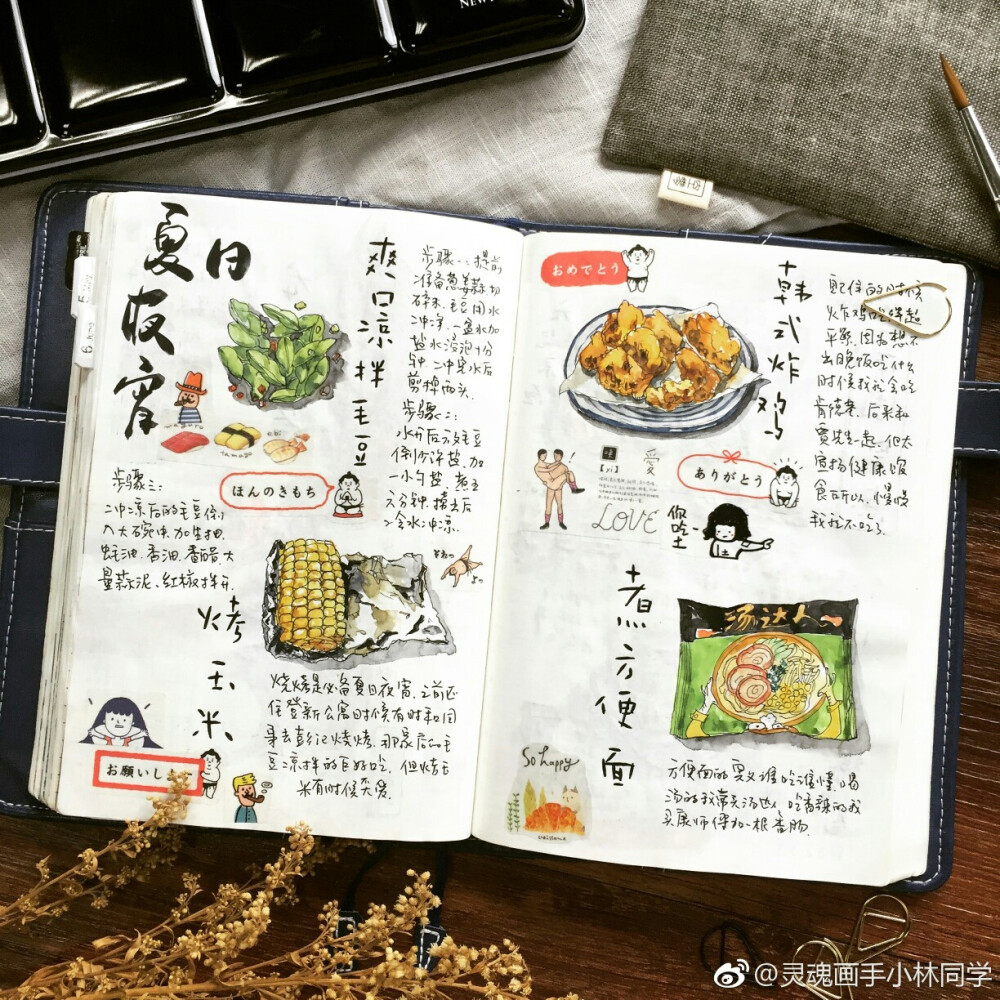 夏日
夜宵
爽口凉拌毛豆
步骤一:提前
准备葱姜蒜切
碎末,毛豆用水
冲洋,一盆水加
盐水浸泡十分
钟,二冲完水后
剪掉两头.
步骤二:
水开后放毛豆
倒少许盐,加
一小勺盐,煮五
六分钟,捞出后
冷水冲凉.
maguro
tamago
ebi
ほんのきもち
步骤三:
冲凉后的毛豆倒
入大碗中,加生抽
蚝油,香油,香醋,大
量蒜泥,红椒拌开.
烤玉米
烧烤是必备夏日夜宵,之前还
住登新公寓时候有时和同
身去彭记烧烤,那家店的毛
豆凉拌的巨好吃,但烤玉
米有时候太
お願いし
おめでとう
韩式炸鸡
配住的时候
炸鸡吃得起
平频,因为想不
出晚饭吃什么
时候我就会吃
肯德基,后来和
贾先一起,他大
宣扬健康饮
食所以,慢慢
我就不吃了.
愛
LOVE
ありがとう
你吃土
煮方便面
汤达人
So happy
方便面的奥义谁吃谁懂,喝
汤的我常买汤达人,吃香辣的我
买康师傅加一根香肠.
@灵魂画手小林同学